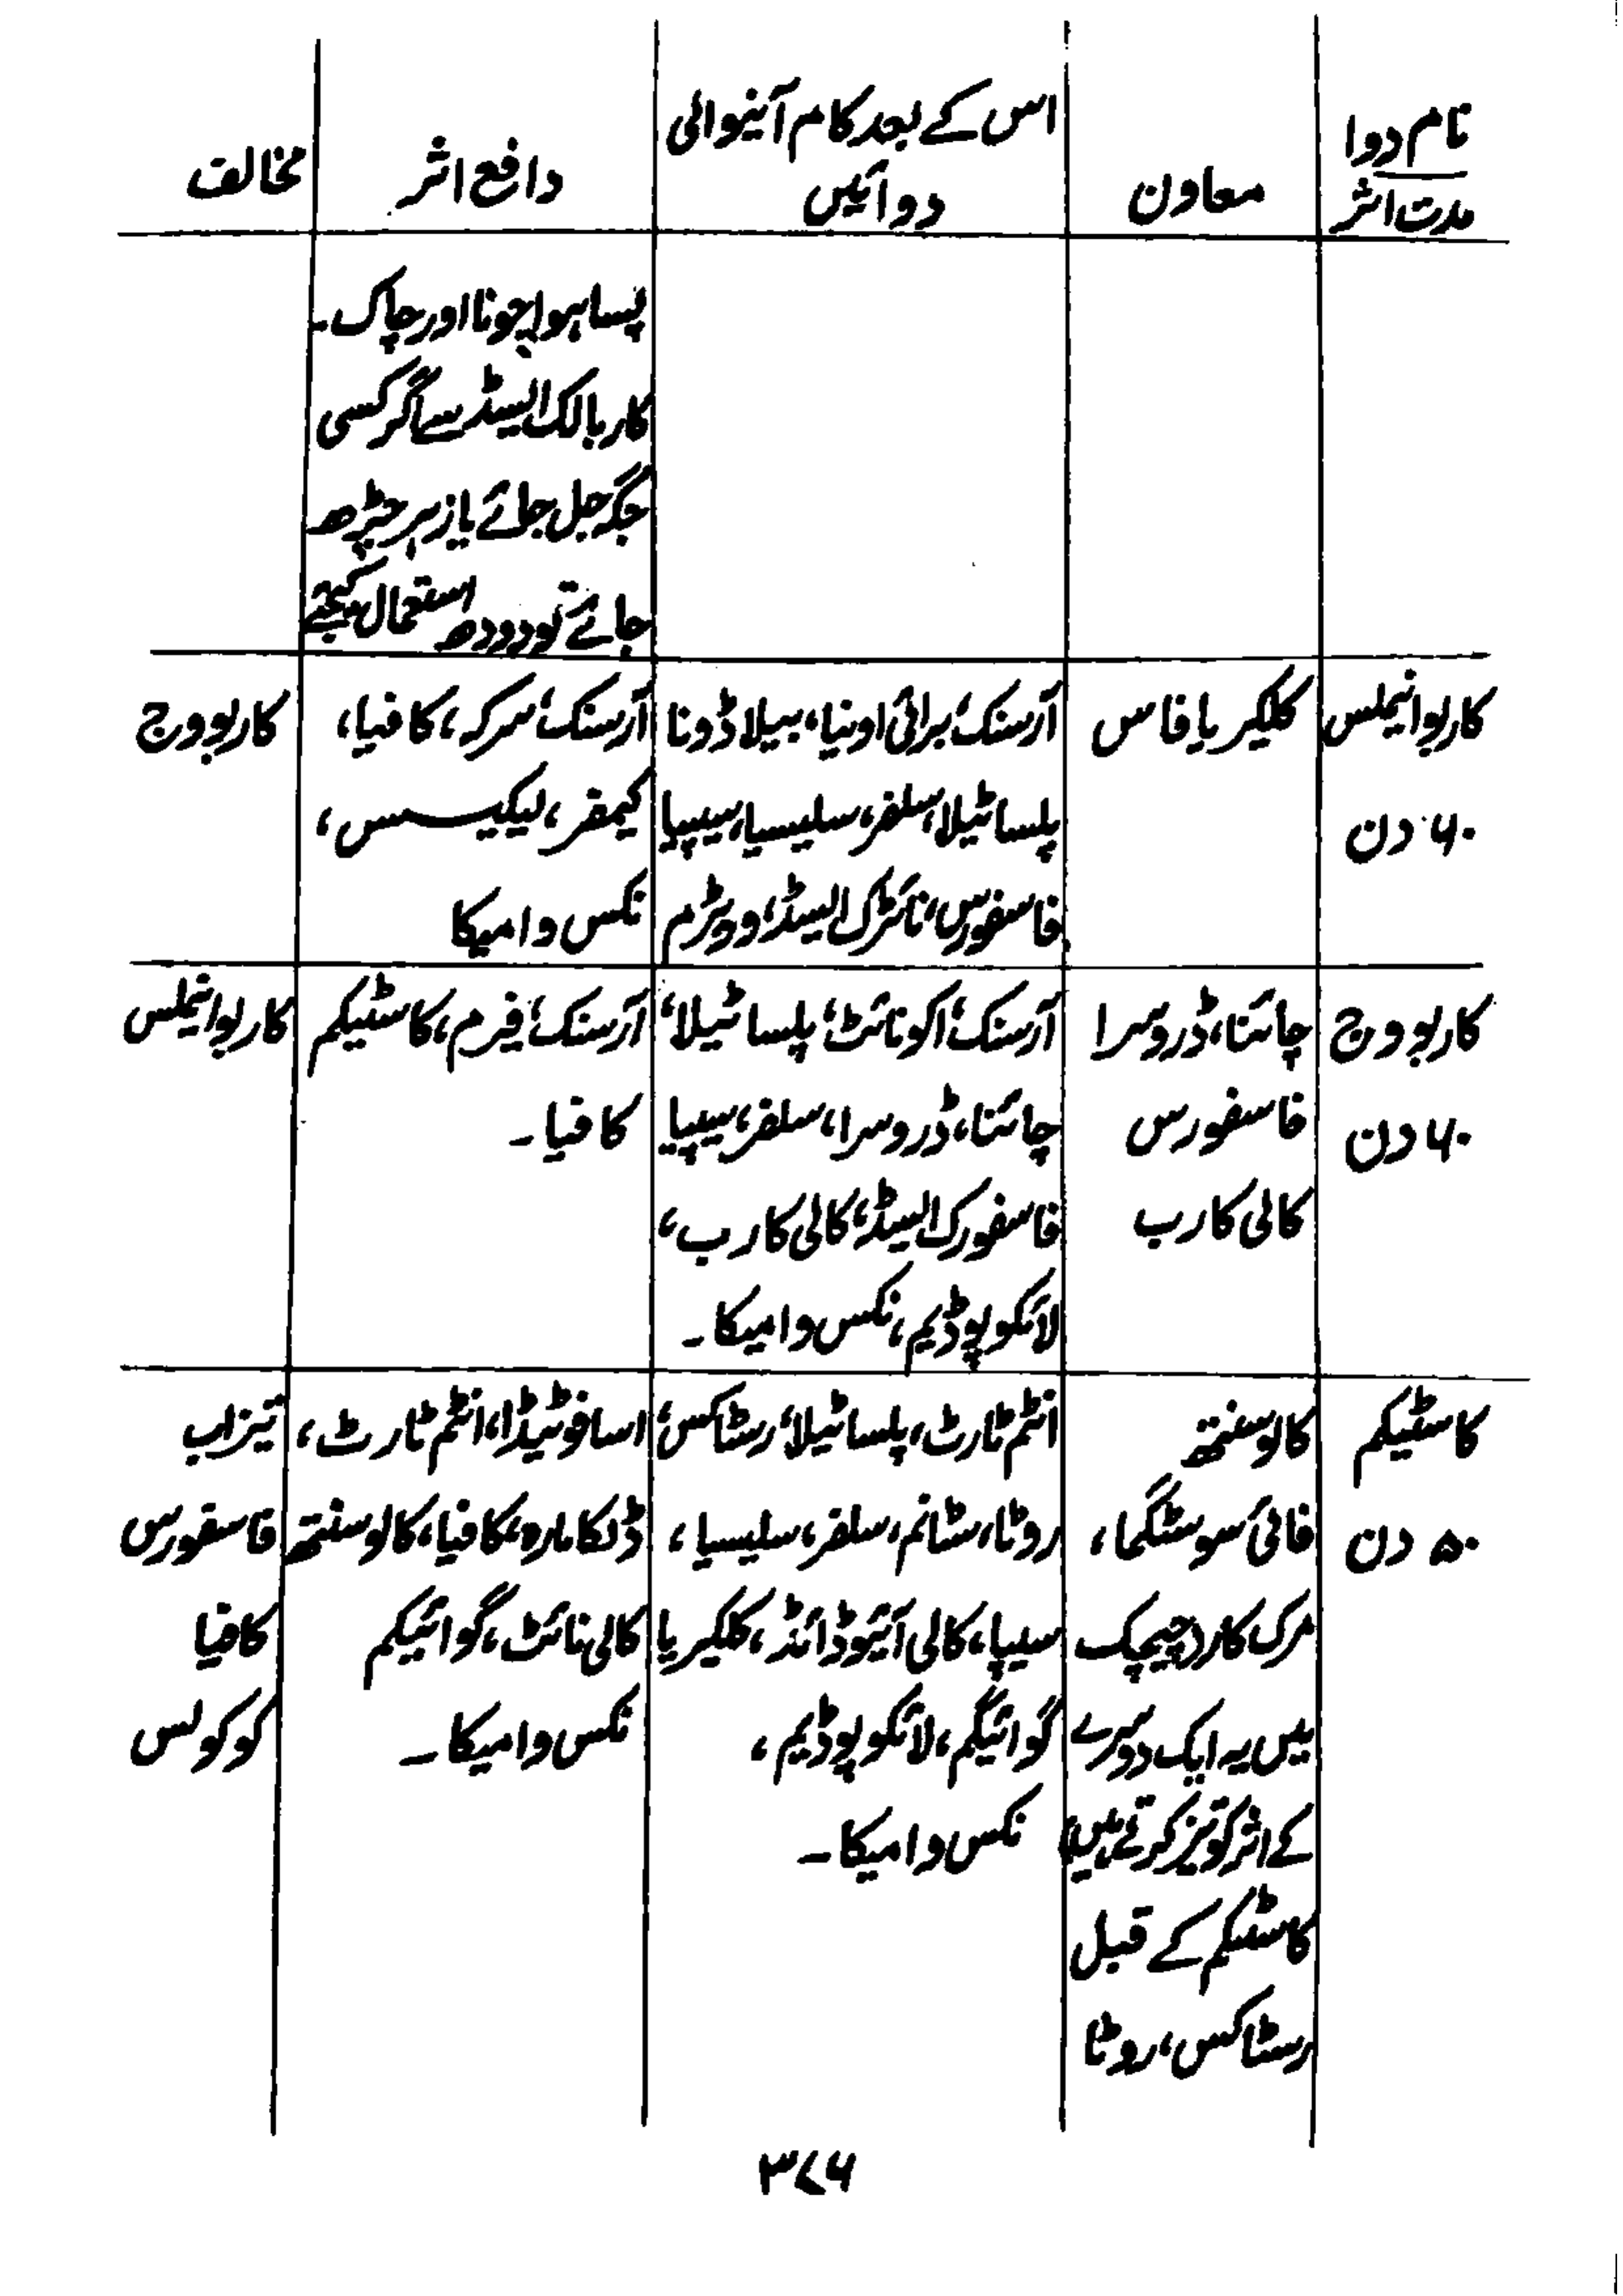 نام دوا
مدت اثر
معاون
اس کے بعد کام آنیوالی
دوائیں
دافع اثر
مخالف
پسا ہوا چونا اور چاک۔
کاربالک ایسڈ سے اگر کسی
جگہ جل جائے یا زہر چڑھ
جائے تو دودھ استعمال کیجئے
کاربو انیملس
۶۰ دن
کلکیریا فاس
آرسنک، برائی اونیا، بیلا ڈونا
پلساٹیلا، سلفر، سلیسیا، سیپیا
فاسفورس، نائٹرک ایسڈ، وورٹرم
آرسنک، سرکہ، کافیا،
کیمفر، لیکیسس،
نکس وامیکا
کاربو وج
کاربو وج
۶۰ دن
چائنا، ڈروسرا
فاسفورس
کالی کارب
آرسنک، اکونائٹ، پلساٹیلا،
چائنا، ڈروسرا، سلفر، سیپیا
فاسفورک ایسڈ، کالی کارب،
لائکو پوڈیم، نکس وامیکا۔
آرسنک، فیرم، کاسٹیکم
کافیا۔
کاربو انیملس
کاسٹیکم
۵۰ دن
کالوسنتھ
فائی سوسٹگما،
مرک کار (چیچک
میں یہ ایک دوسرے
کے اثر کو تیز کرتے ہیں)
کاسٹکم کے قبل
رسٹاکس، روٹا
انٹم ٹارٹ، پلساٹیلا، رسٹاکس،
روٹا، سٹانم، سلفر، سلیسیا،
سیپیا، کالی آئیوڈائڈ، کلکیریا
گوائیکم، لائکو پوڈیم،
نکس وامیکا۔
اسافوٹیڈا، انٹم ٹارٹ،
ڈلکامارہ، کافیا، کالوسنتھ
کالی نائٹ، گوائیکم
نکس وامیکا۔
تیزاب
فاسفورس
کافیا
کوکولس
۳۷۶